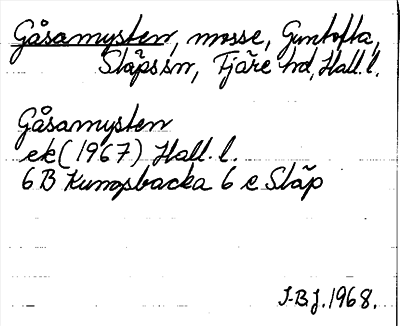 Gåsamysten, mosse, Guntofta,
Släps sn, Fjäre hd, Hall. l.
Gåsamysten
ek (1967) Hall. l.
6 B Kungsbacka 6 e Släp
I.B.J. 1968.